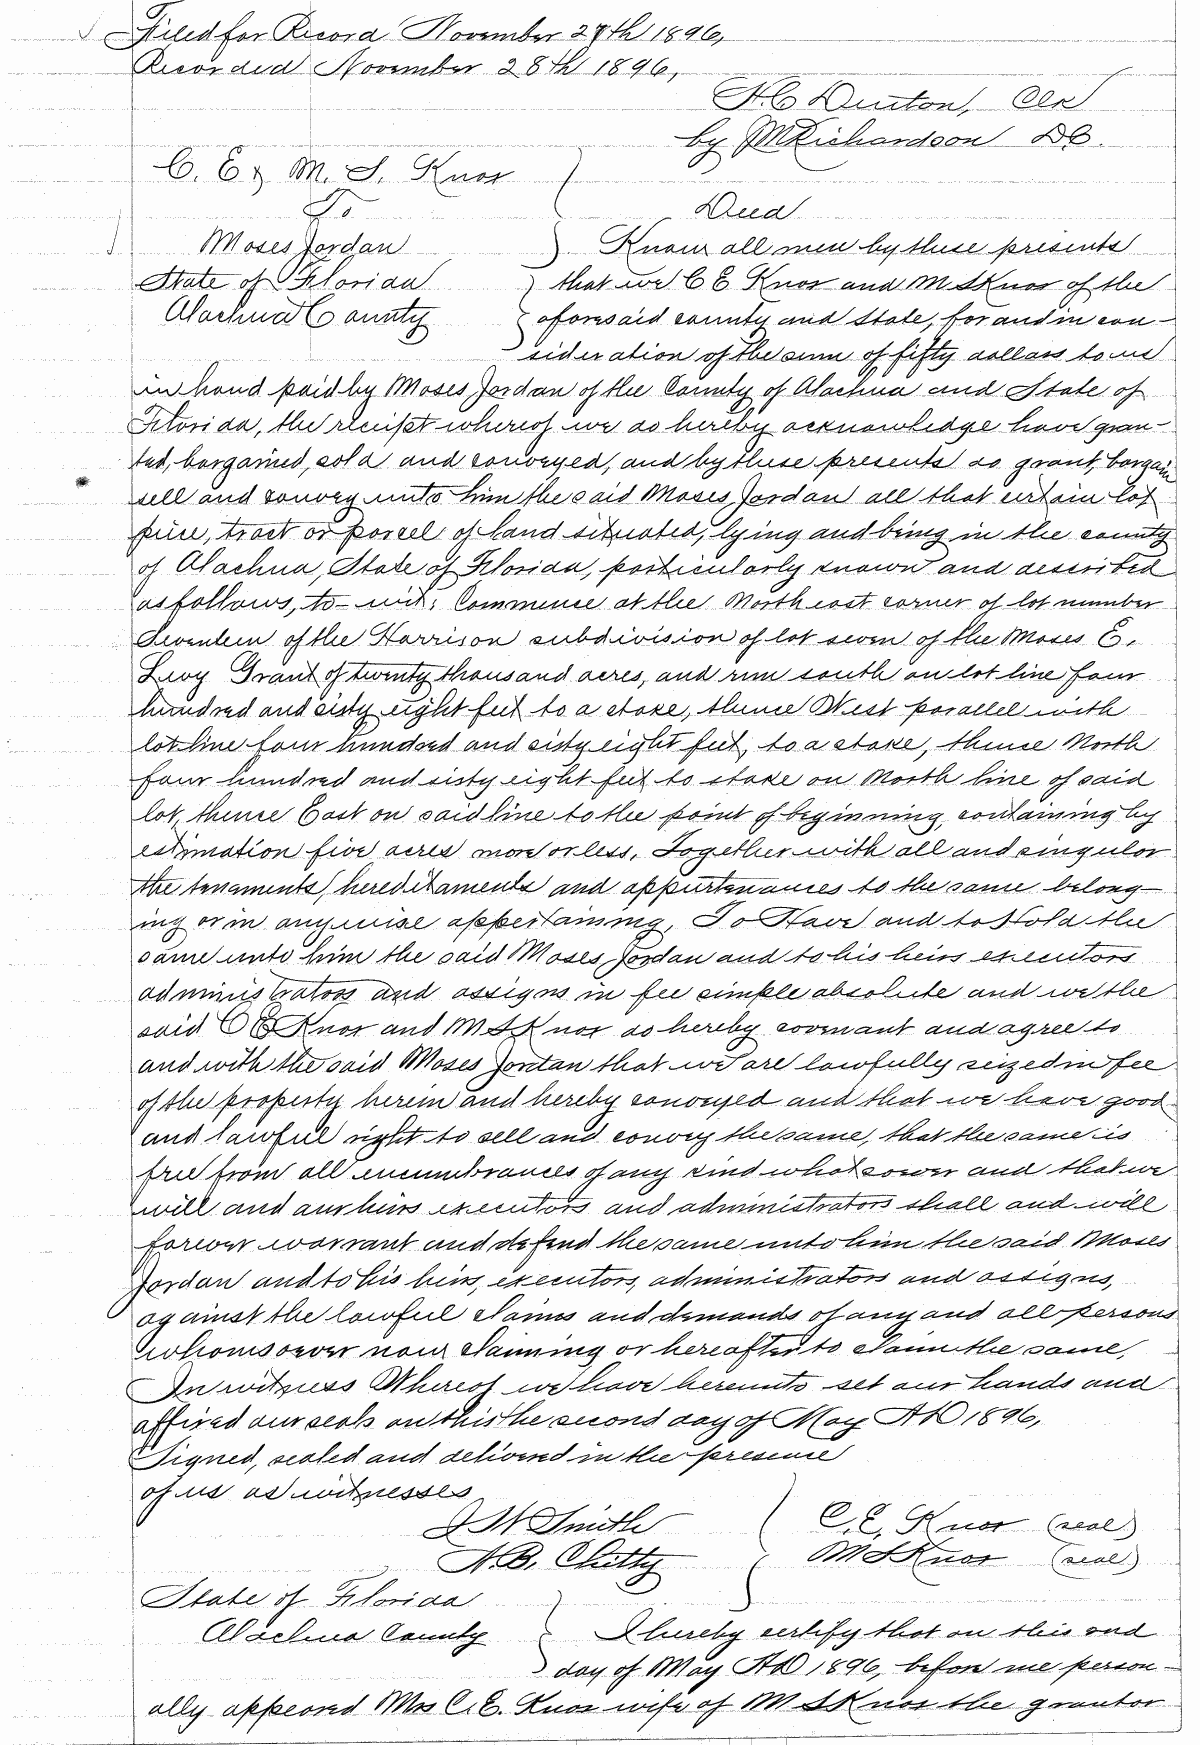 Filed for Record November 28th 1896,
Recorded November 28th 1896,
H.C Denton, Clk
by JM Richardson DC.
C. E & M. S. Knox
To
Deed
Moses Jordan
Know all men by these presents
State of Florida
that we C E Knox and M S Knox of the
Alachua County
aforesaid county and State, for and in con-
sideration of the sum of fifty dollars to us
in hand paid by Moses Jordan of the County of Alachua and State of
Florida, the receipt whereof we do hereby acknowledge have gran-
ted, bargained, sold and conveyed, and by these presents do grant, bargain
sell and convey unto him the said Moses Jordan all that certain lot
piece, tract or parcel of land situated, lying and being in the county
of Alachua, State of Florida, particularly known and described
as follows, to-wit: Commence at the North east corner of lot number
Seventeen of the Harrison subdivision of lot seven of the Moses E.
Levy Grant of twenty thousand acres, and run south on lot line four
hundred and sixty eight feet to a stake, thence West parallel with
lot line four hundred and sixty eight feet, to a stake, thence North
four hundred and sixty eight feet to stake on North line of said
lot, thence East on said line to the point of beginning, containing by
estimation five acres more or less, Together with all and singular
the tenaments, hereditaments and appurtenances to the same belong-
ing or in anywise appertaining, To Have and to Hold the
same unto him the said Moses Jordan and to his heirs executors
administrators and assigns in fee simple absolute and we the
said C E Knox and M S Knox do hereby covenant and agree to
and with the said Moses Jordan that we are lawfully seized in fee
of the property herein and hereby conveyed and that we have good
and lawful right to sell and convey the same, that the same is
free from all encumbrances of any kind whatsoever and that we
will and our heirs executors and administrators shall and will
forever warrant and defend the same unto him the said Moses
Jordan and to his heirs, executors, administrators and assigns,
against the lawful claims and demands of any and all persons
whomsoever now claiming or hereafter to claim the same,
In witness Whereof we have hereunto set our hands and
affixed our seals on this the second day of May AD 1896,
Signed, sealed and delivered in the presence
of us as witnesses
J W Smith
C. E, Knox (seal)
N. B. Chitty
M S Knox (seal)
State of Florida
Alachua County
I hereby certify that on this 2nd
day of May AD 1896, before me person-
ally appeared Mrs C. E. Knox wife of M S Knox the grantor